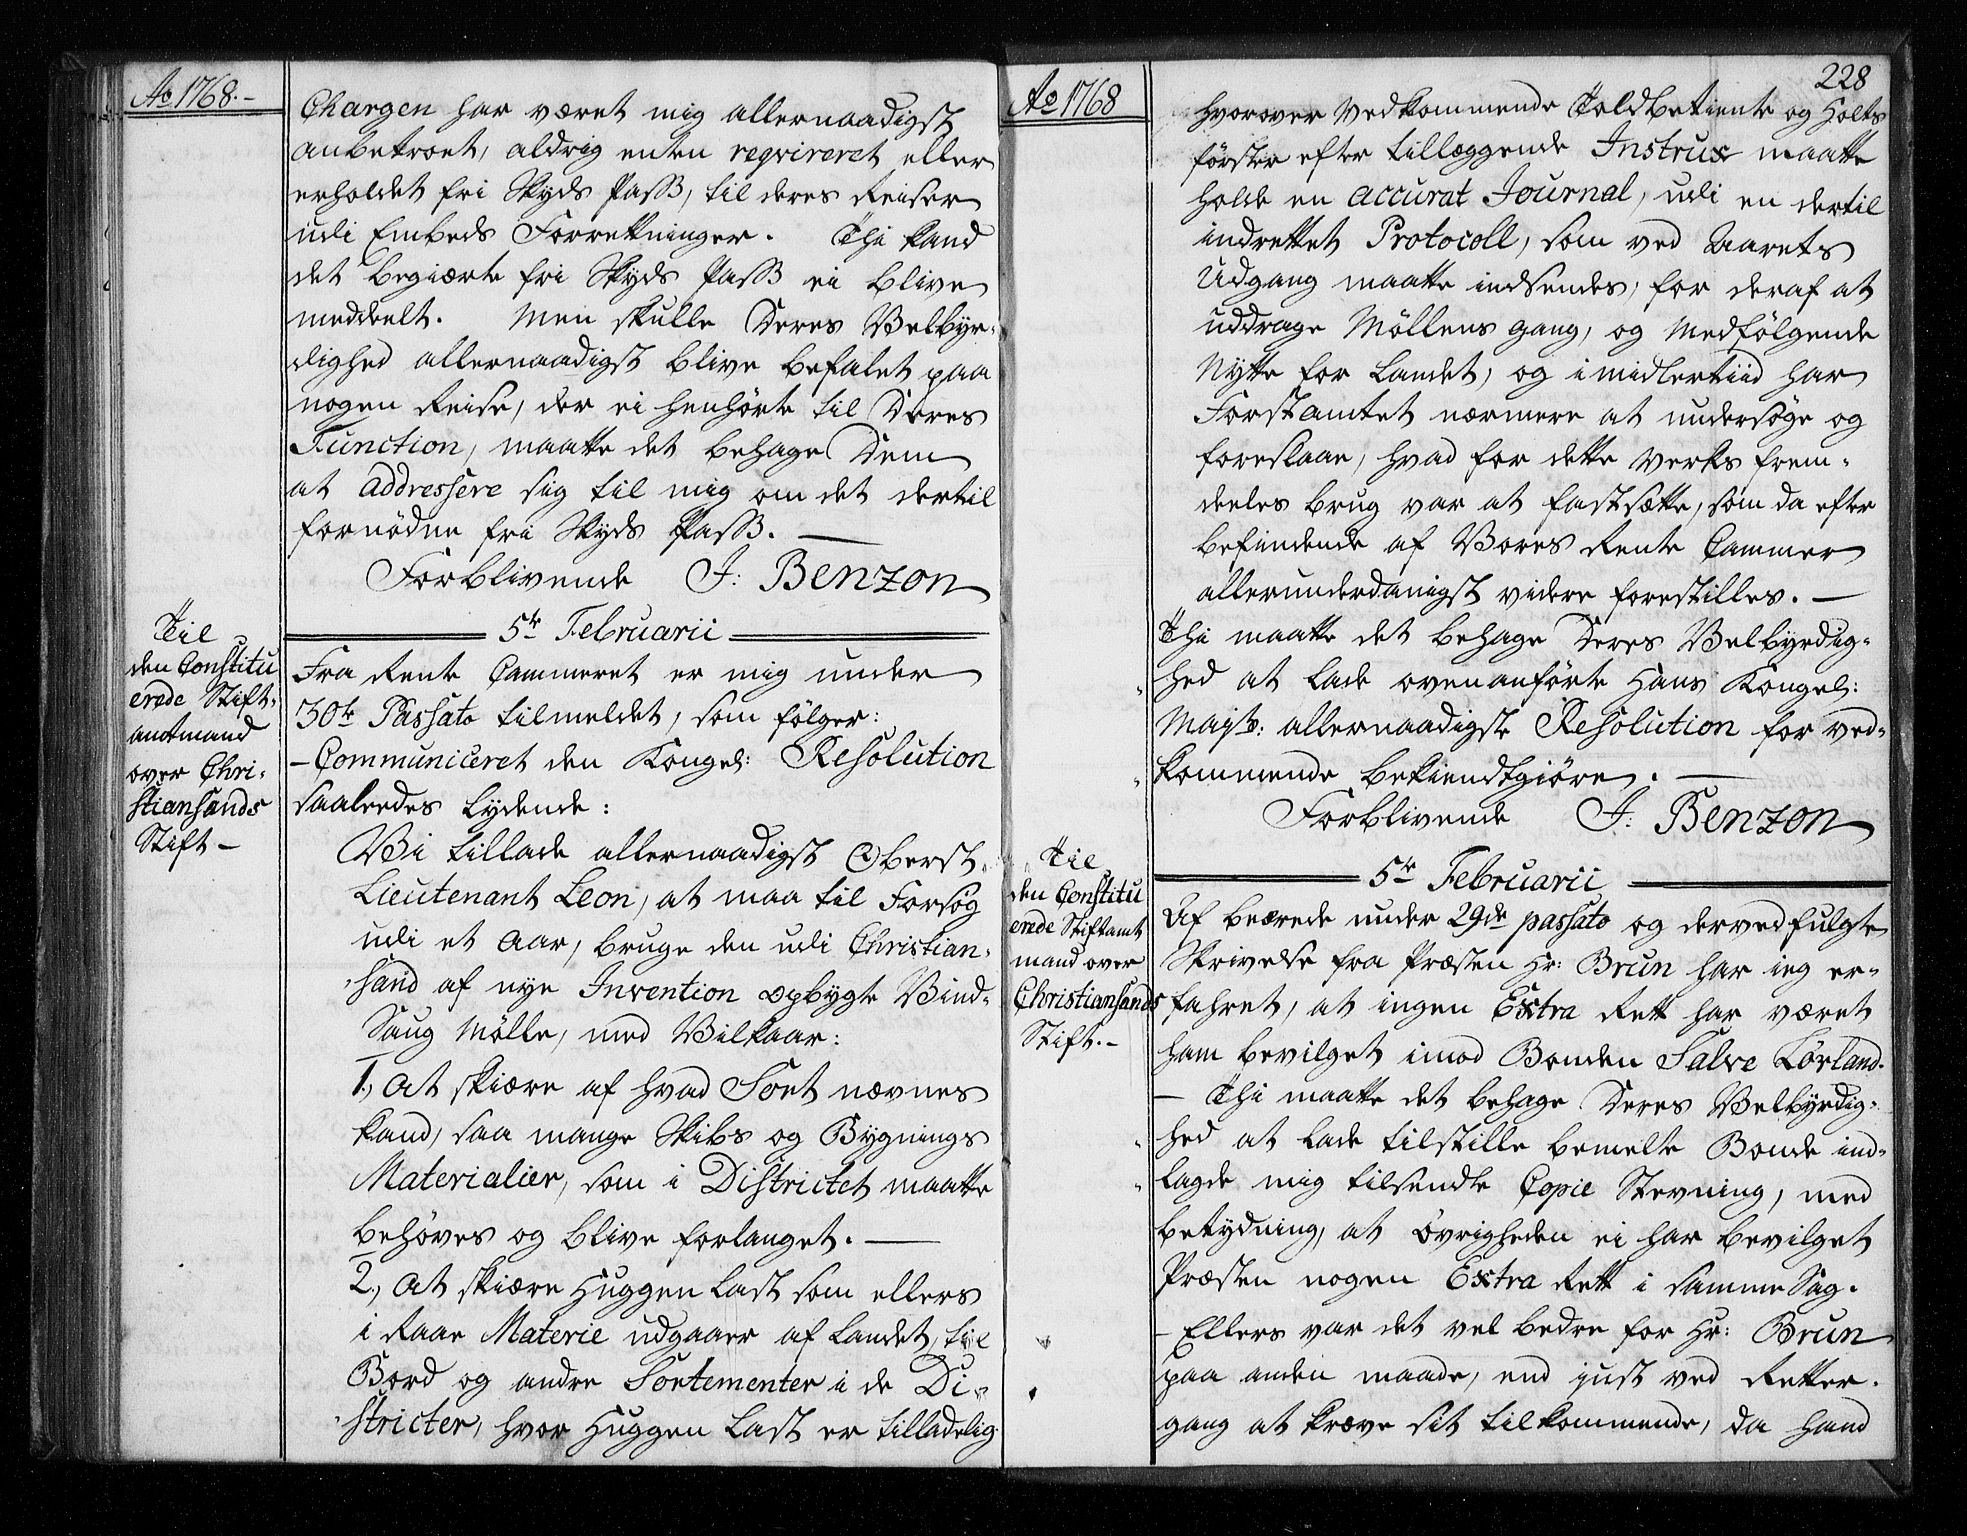 Ao 1768.-
Chargen har været mig allernaadigst
anbetroet, aldrig enten reqvireret eller
erholdet fri Skyds Pass, til deres Reiser
udi Embeds Forretninger. Thi kand
det begiærte fri Skyds Pass ei blive
meddeelt. Men skulle Deres Velbyr-
dighed allernaadigst blive befalet paa
nogen Reise, der ei henhörte til Deres
Function, maatte det behage Dem
at addressere sig til mig om det dertil
fornödne fri Skyds Pass. —
Forblivende J: Benzon
5te Februarii
Til
den Constitu
erede Stift-
amtmand
over Chri-
stiansands
Stift -
Fra Rente Cammeret er mig under
30te Passato tilmeldet, som fölger:
- Communiceret den Kongel: Resolution
saaleedes lydende:
Vi tillade allernaadigst Oberst-
Lieutenant Leon, at maa til Forsög
udi et Aar, bruge den udi Christian-
sand af nye Invention opbygte Vind-
Saug Mölle, med Vilkaar:
1., At skiære af hvad Sort nævnes
kand, saa mange Skibs og Bygnings
Materialier, som i Districtet maatte
behöves og blive forlanget. —
2., At skiære Huggen Last som ellers
i Raae Materie udgaaer af Landet, til
Bord og andre Sortementer i de Di-
stricter, hvor Huggen Last er tilladelig
Ao 1768
228
hvorover Vedkommende Toldbetiente og Holts
förster efter tillæggende Instrux maatte
holde en accurat Journal, udi en dertil
indrettet Protocoll, som ved Aarets
Udgang maatte indsendes, for deraf at
uddrage Möllens gang, og medfölgende
Nytte for Landet, og imidlertiid har
Forstamtet nærmere at undersöge og
foreslaae, hvad for dette Verks frem-
deeles brug var at fastsætte, som da efter
befindende af Vores Rente Cammer
allerunderdanigst videre forestilles. —
Thi maatte det behage Deres Velbyrdig-
hed at lade ovenanförte Hans Kongel:
Mayts: allernaadigste Resolution for ved-
kommende bekiendtgiöre. —
Forblivende J: Benzon
5te Februarii
Til
den Constitu
erede Stiftamt
mand over
Christiansands
Stift.-
Af beærede under 29de passato og dervedfulgte
Skrivelse fra Præsten Hr: Brun har ieg er-
fahret, at ingen Extra Rett har været
ham bevilget imod Bonden Salve Lörland.
- Thi maatte det behage Deres Velbyrdig-
hed at lade tilstille bemelte Bonde ind-
lagde mig tilsendte Copie Stevning, med
betydning, at Övrigheden ei har bevilget
Præsten nogen Extra Rett i samme Sag.
- Ellers var det vel bedre for Hr: Brun
paa anden maade, end just ved Retter-
gang at kræve sit tilkommende, da hand